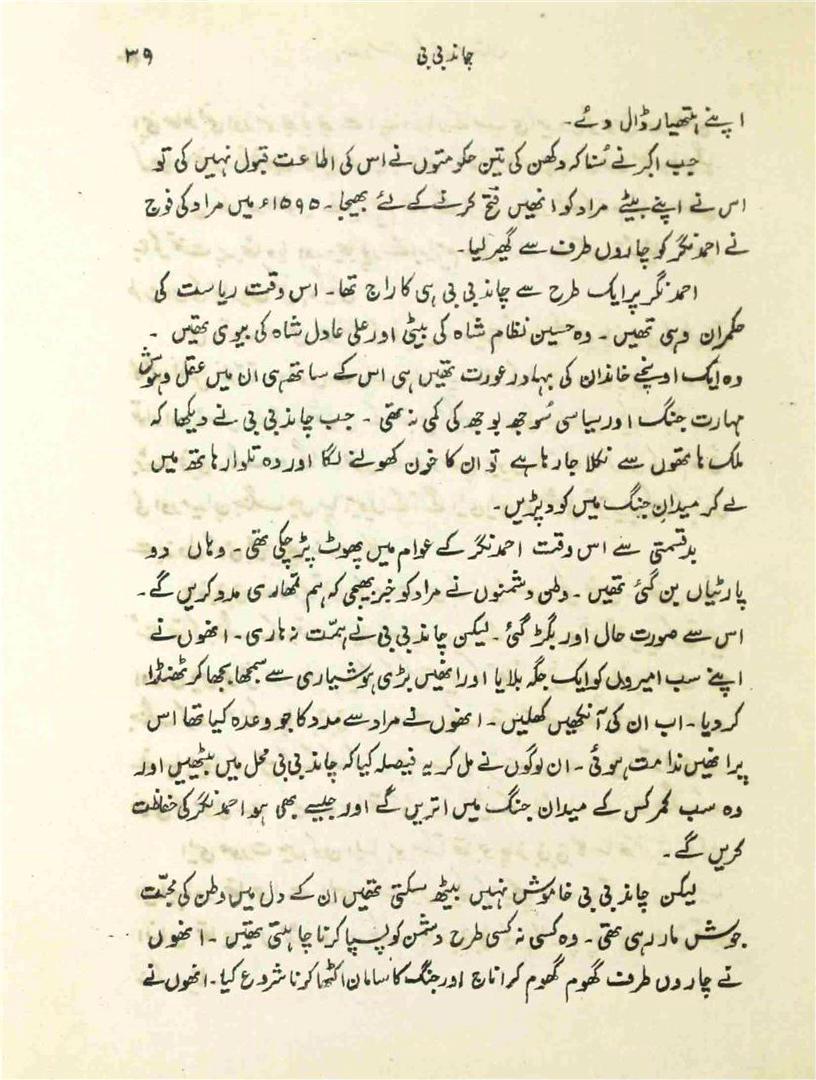 چاند بی بی ۳۹
اپنے ہتھیار ڈال دئے۔
جب اکبر نے سُنا کہ دکھن کی تین حکومتوں نے اس کی اطاعت قبول نہیں کی تو
اس نے اپنے بیٹے مراد کو انھیں فتح کرنے کے لئے بھیجا۔ ۱۵۹۵ء میں مراد کی فوج
نے احمد نگر کو چاروں طرف سے گھیر لیا۔
احمد نگر پر ایک طرح سے چاند بی بی ہی کا راج تھا۔ اس وقت ریاست کی
حکمران وہی تھیں۔ وہ حسین نظام شاہ کی بیٹی اور علی عادل شاہ کی بیوی تھیں۔
وہ ایک اونچے خاندان کی بہادر عورت تھیں ہی اس کے ساتھ ہی ان میں عقل و ہوش
مہارت جنگ اور سیاسی سُوجھ بوجھ کی کمی نہ تھی۔ جب چاند بی بی نے دیکھا کہ
ملک ہاتھوں سے نکلا جا رہا ہے تو ان کا خون کھولنے لگا اور وہ تلوار ہاتھ میں
لے کر میدانِ جنگ میں کود پڑیں۔
بدقسمتی سے اس وقت احمد نگر کے عوام میں پھوٹ پڑ چکی تھی۔ وہاں دو
پارٹیاں بن گئی تھیں۔ وطن دشمنوں نے مراد کو خبر بھیجی کہ ہم تمھاری مدد کریں گے۔
اس سے صورت حال اور بگڑ گئی۔ لیکن چاند بی بی نے ہمّت نہ ہاری۔ انھوں نے
اپنے سب امیروں کو ایک جگہ بلایا اور انھیں بڑی ہوشیاری سے سمجھا بجھا کر ٹھنڈا
کر دیا۔ اب ان کی آنکھیں کھلیں۔ انھوں نے مراد سے مدد کا جو وعدہ کیا تھا اس
پر انھیں ندامت ہوئی۔ ان لوگوں نے مل کر یہ فیصلہ کیا کہ چاند بی بی محل میں بیٹھیں اور
وہ سب کمر کس کے میدان جنگ میں اتریں گے اور جیسے بھی ہو احمد نگر کی حفاظت
کریں گے۔
لیکن چاند بی بی خاموش نہیں بیٹھ سکتی تھیں ان کے دل میں وطن کی محبّت
جوش مار رہی تھی۔ وہ کسی نہ کسی طرح دشمن کو پسپا کرنا چاہتی تھیں۔ انھوں
نے چاروں طرف گھوم گھوم کر اناج اور جنگ کا سامان اکٹھا کرنا شروع کیا۔ انھوں نے